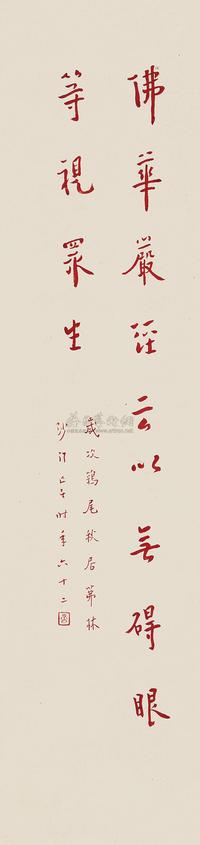 佛華嚴經云以無碍眼
等視眾生
歲次鶉尾秋居茀林
沙門亡言時年六十二